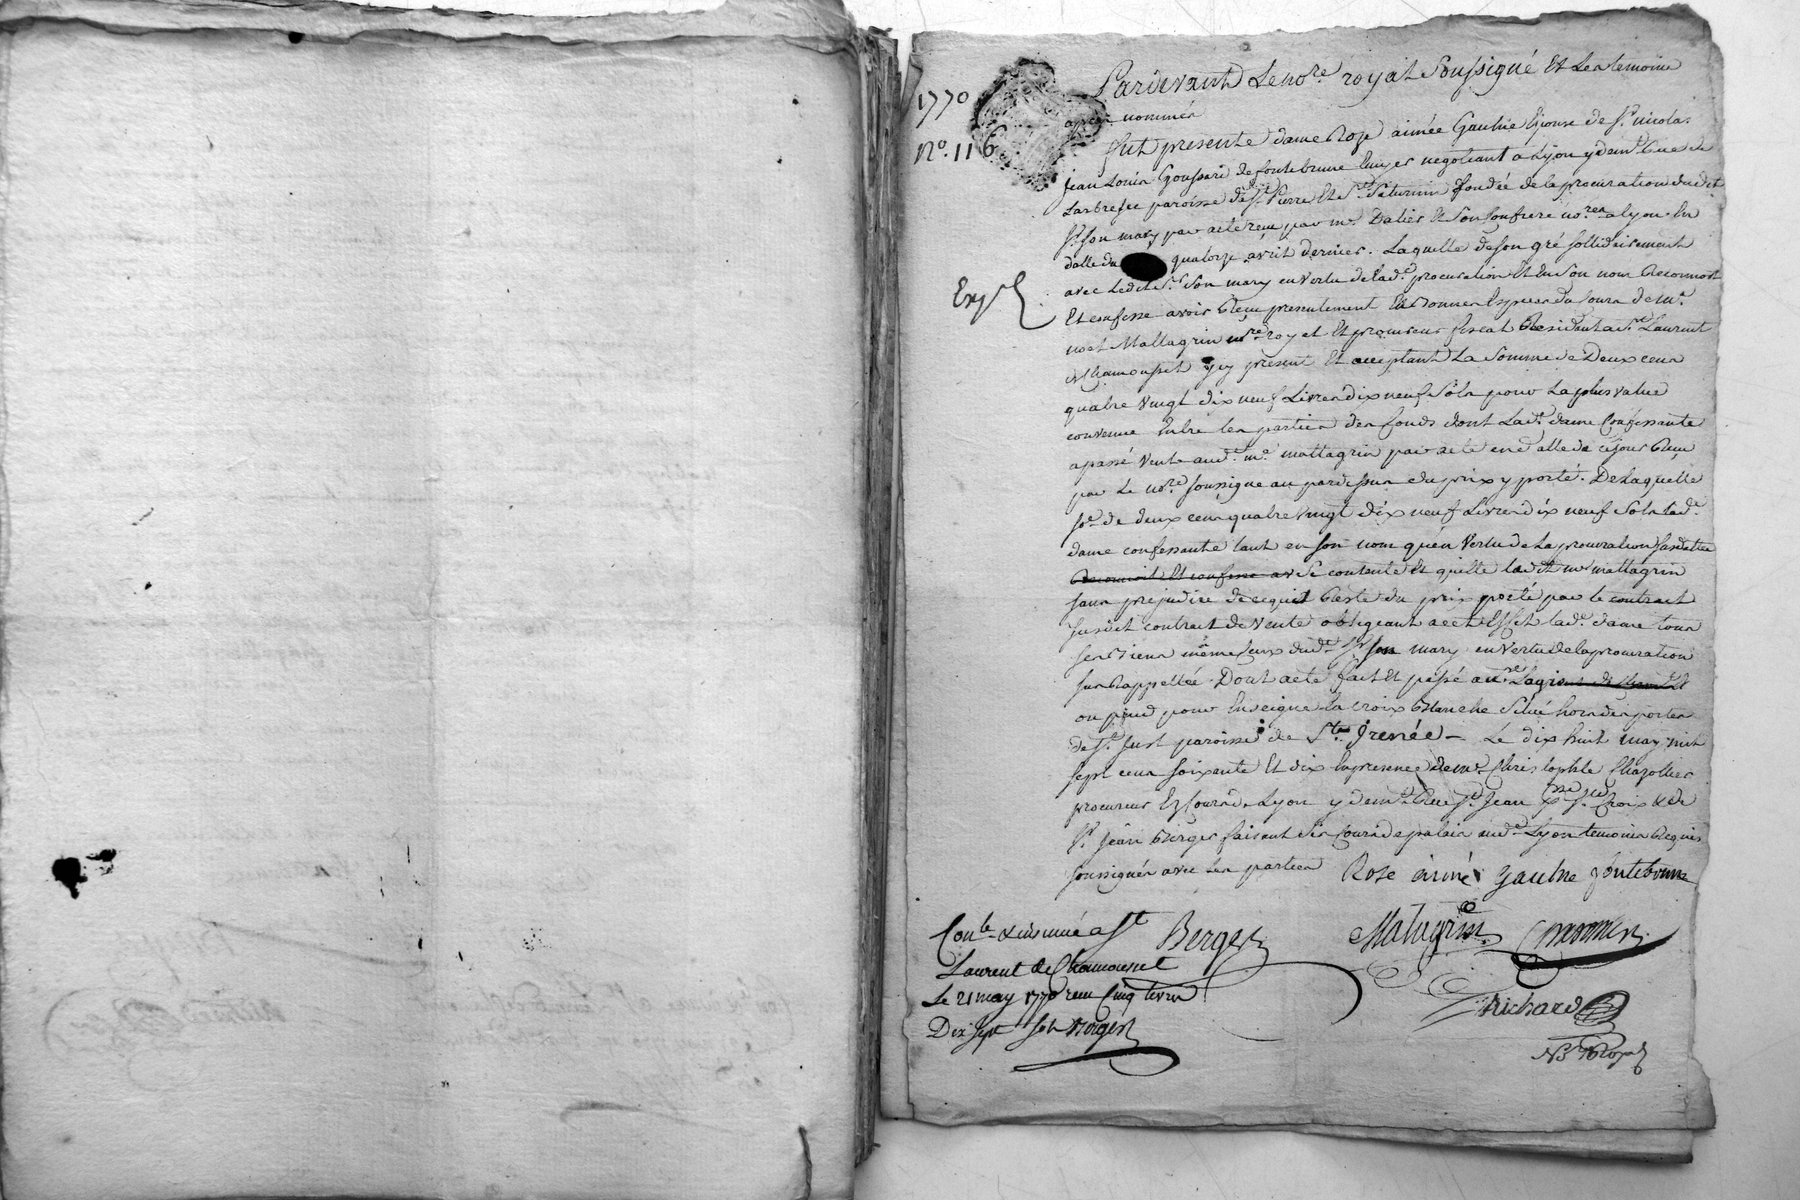 1770
No. 116
Pardevant Le nore. royal Soussigné Et Les temoins
apres nommés
fut presente dame Rose aimée Gaulne Epouse de Sr. nicolas
jean Louis Goussard de fontebrune Ecuyer negotiant à Lyon y demt. Rue de
Larbresec paroisse de St. Pierre Et St. Saturnin fondée de la procuration dudit
Sr. son mary par acte reçu par me. Dalier Et son Confrere nores. a Lyon En
datte du quatorze avril dernier. Laquelle de son gré sollidairement
avec Ledit Sr. Son mary en vertu de Lade. procuration Et En Son nom Reconnoit
Exp
Et confesse avoir Reçu presentement Et Comme Especes du Cours de me.
noel Mattagrin nore. royal Et procureur fiscal Resident a St. Laurent
de Chamousset icy present Et acceptant La Somme de Deux cens
quatre vingt dix neuf Livres dix neuf Sols pour La plus value
convenue Entre Les parties des fonds dont Lade. dame Confessante
a passé Vente aud. me. mattagrin par acte en datte de ce jour Reçu
par Le nore. soussigne au pardessus du prix y porté. De Laquelle
So. de deux cens quatre vingt dix neuf Livres dix neuf Sols Lade.
dame confessante tant en son nom qu'en Vertu de La procuration susdattée
Reconnoit Et confesse av Se contente Et quitte ledit me mattagrin
sans prejudice de ce qui Reste du prix porté par le contract
susdit contract de Vente obligeant a cet Effet lade. dame tous
ses Biens même Ceux dudt. Sr. son mary en Vertu de la procuration
sus Rappellée. Dont acte fait Et passé au Logis
ou pend pour Enseigne La croix Blanche Situé hors des portes
de St. Just paroisse de St. Irenée - Le dix huit may mil
sept cens soixante Et dix En presence de me. Christophle Chazottier
procureur Es Cours de Lyon y demt. Rue St. Jean psse. Ste. Croix & de
Sr. Jean Berger faisant Les Cours de palais aud. Lyon temoins Requis
soussignés avec Les parties Rose aimé Gaulne fontebrune
Conle. & insinué a St
Laurent de Chamousset
Le 21 may 1770 reçu Cinq livres
Dix sept sols Berger
Berger
Matagrin
Richard
Nre Royal